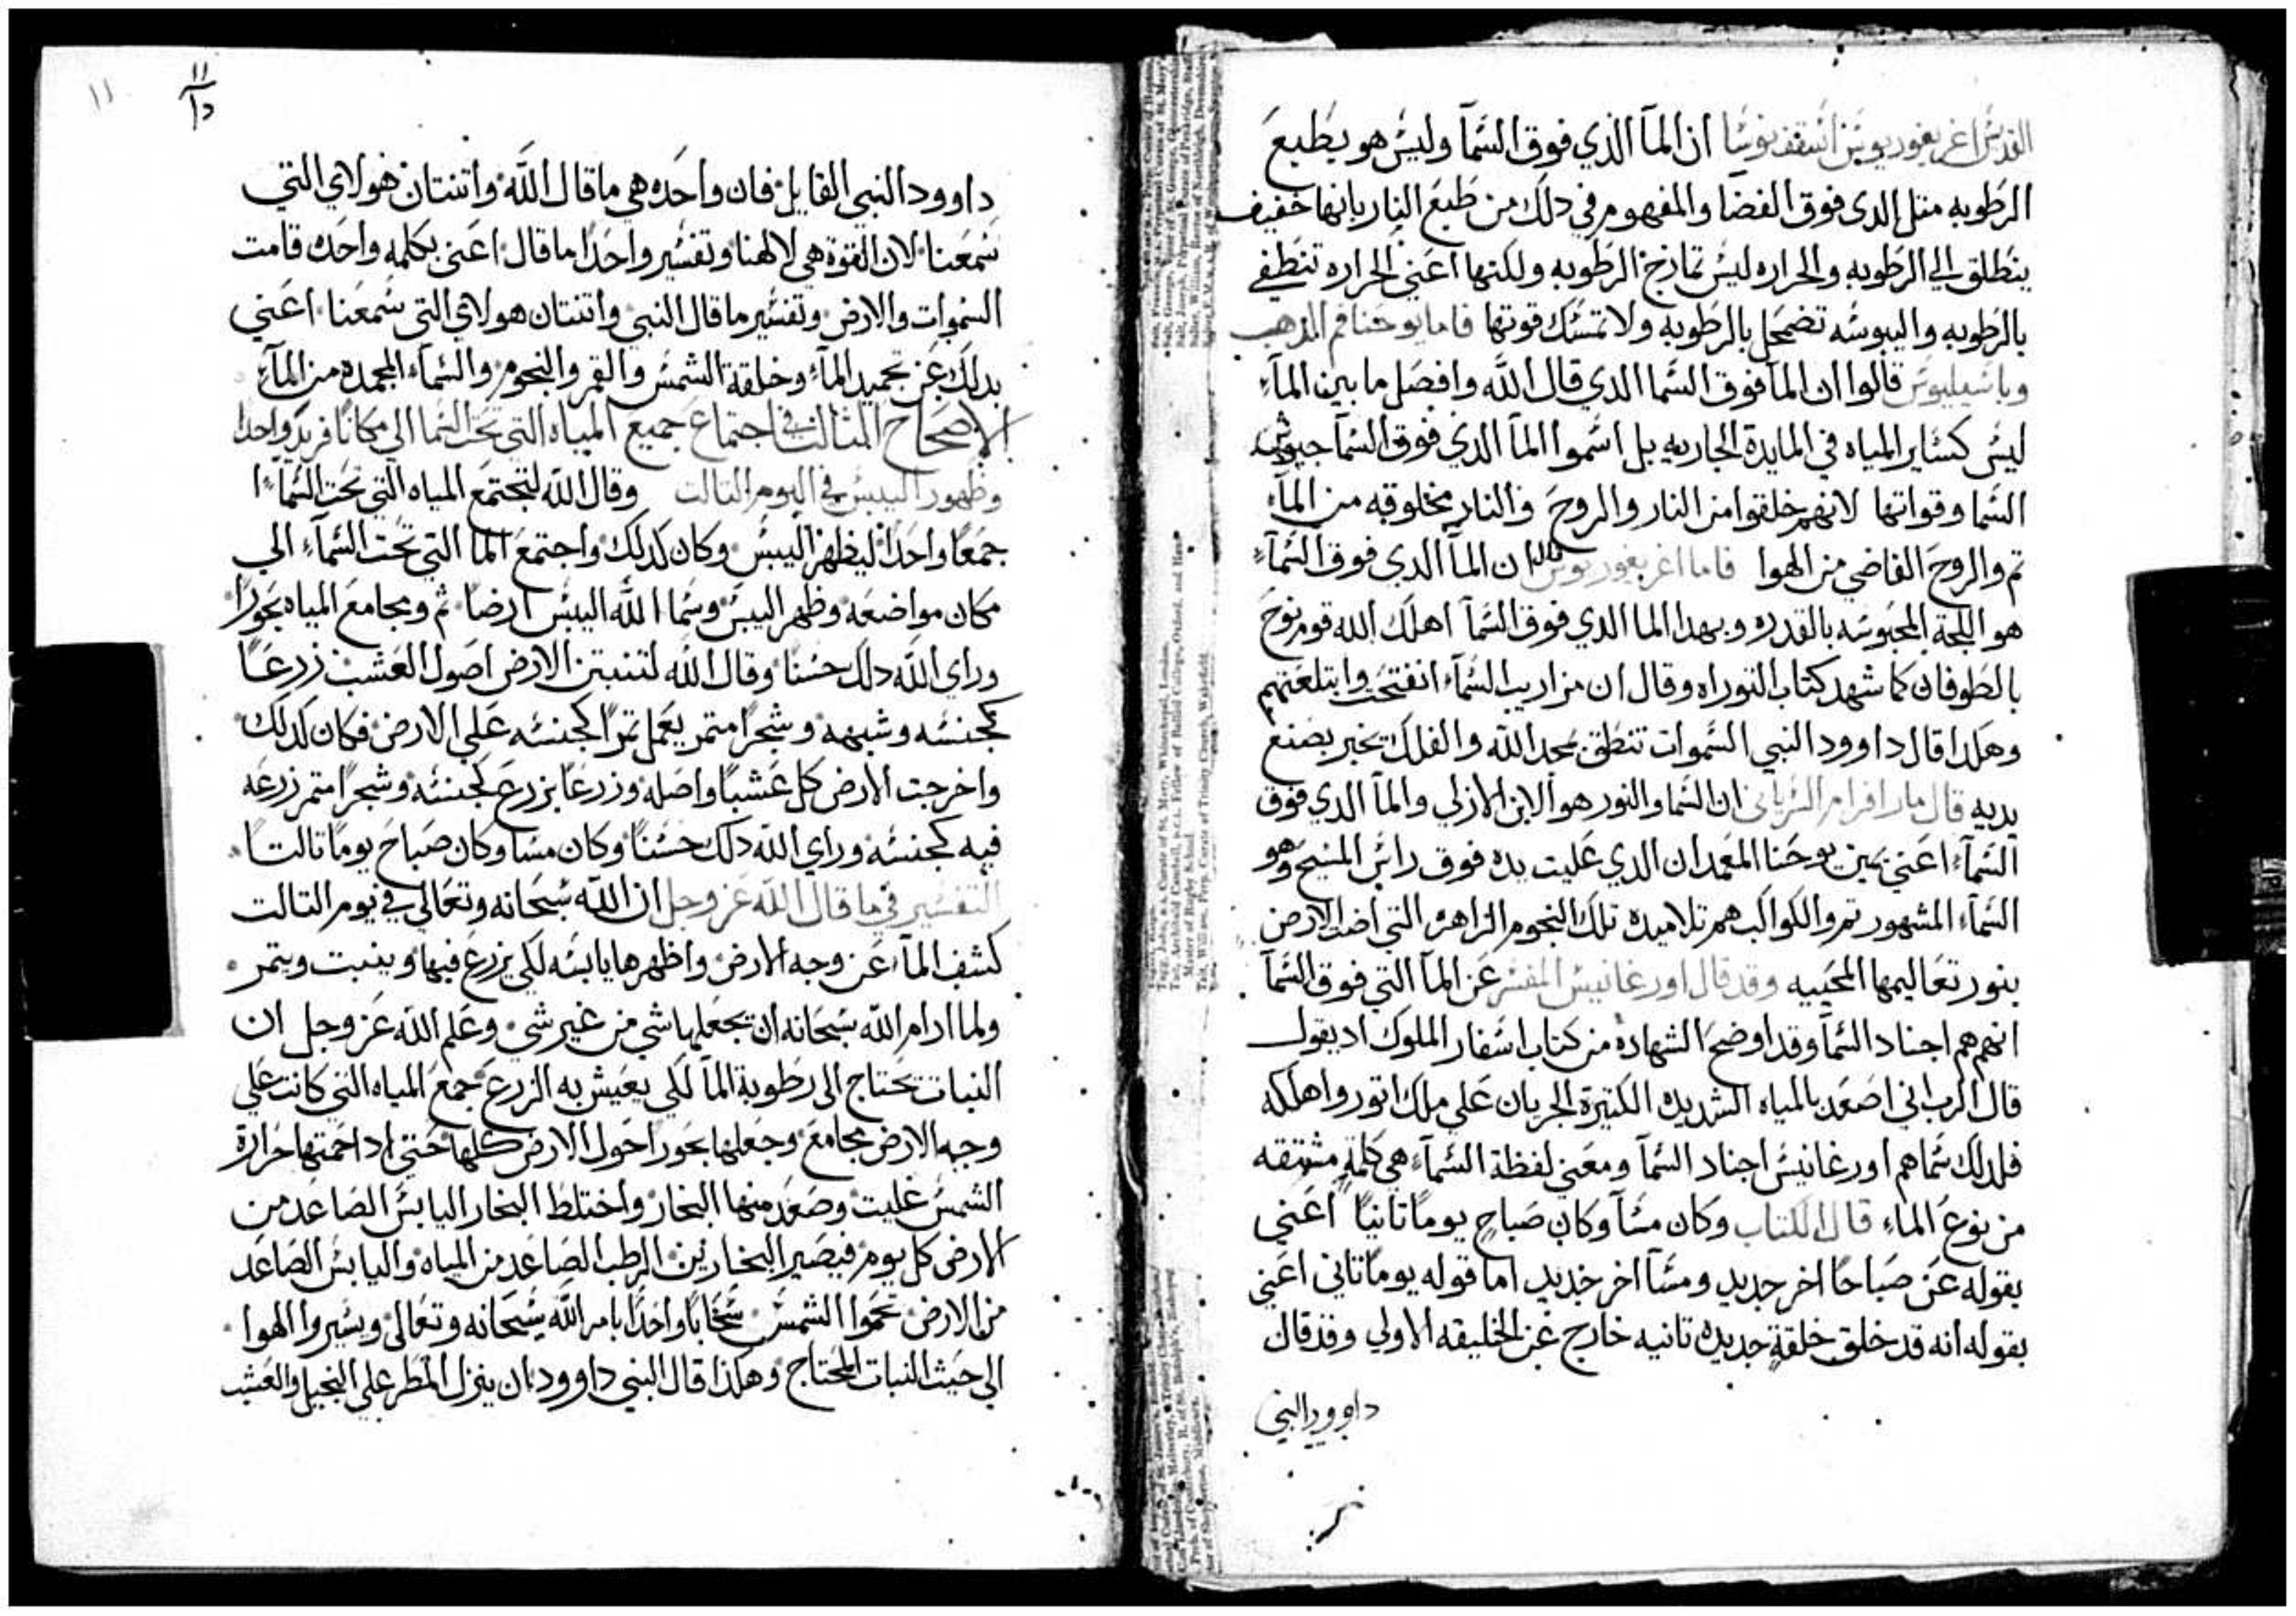 القديس اغريغوريوس اسقف نوسا ان المآ الذي فوق السمآ وليس هو يطبع
الرطوبه متل الدى فوق الفضا والمفهوم في دلك من طبع النار بانها خفيف
ينطلق الي الرطوبه والحراره ليس تمازج الرطوبه ولكنها اعني الحراره تنطفي
بالرطوبه واليبوسه تضمحل بالرطوبه ولا تمسك قوتها فاما يوحنا فم الدهب
وباسيليوس قالوا ان المآ فوق السما الدي قال الله وافصل ما بين المآء
ليس كساير المياه في المايدة الجاريه بل اسموا المآ الدي فوق السمآ جيوش
السما وقواتها لانهم خلقوا من النار والروح فالنار مخلوقه من المآء
تم والروح الفاضي من الهوا فاما اغريغوريوس قال ان المآ الدي فوق السمآء
هو اللجة المحبوسه بالقدره وبهدا الما الدي فوق السمآ اهلك الله قوم نوح
بالطوفان كما شهد كتاب التوراه وقال ان مزاريب السمآء انفتحت وابتلعتهم
وهكدا قال داوود النبي السموات تنطق بمجد الله والفلك تخبر بصنع
يديه قال مار افرام السرياني ان السما والنور هو الابن الازلي والمآ الدي فوق
السمآء اعني يمين يوحنا المعمدان الدي عليت يده فوق راس المسيح وهو
السمآء المشهور تم والكواكب هم تلاميده تلك النجوم الزاهره التي اضات الارض
بنور تعاليمها المحييه وقد قال اورغانيس المفسر عن المآ التي فوق السمآ
انهم هم اجناد السمآ وقد اوضح الشهاده من كتاب اسفار الملوك اد يقول
قال الرب اني اصعد بالمياه الشديده الكتيرة الجريان علي ملك اتور واهلكه
فلدلك سماهم اورغانيس اجناد السمآ ومعني لفظة السمآء هي كلمةٍ مشتقه
من نوع الماء قال الكتاب وكان مسآ وكان صباح يومًا تانيًا اعني
بقوله عن صباحًا اخر جديد ومسآ اخر جديد اما قوله يومًا تاني اعني
بقوله انه قد خلق خلقةٍ جديده تانيه خارج عن الخليقه الاولي وقد قال
داوود النبي
١١
١١
داوود النبي القايل فان واحده هي ما قال الله واتنتان هولاي التي
سمعنا لان القوة هي لالهنا وتفسير واحدًا ما قال اعني بكلمه واحده قامت
السموات والارض وتفسير ما قال النبي واتنتان هولاي التي سمعنا اعني
بدلك عن تجميد المآء وخلقة الشمس والقمر والنجوم والسمآء المجمده من المآء
الاصحاح التالت في اجتماع جميع المياه التي تحت السما الي مكانًا فريد واحدا
وظهور اليبس في اليوم التالت وقال الله لتجتمع المياه التي تحت السمآء
جمعًا واحدًا ليظهر اليبس وكان كدلك واجتمع المآ التي تحت السمآء الي
مكان مواضعه وظهر اليبس وسما الله اليبس ارضا تم ومجامع المياه بحورًا
وراي الله دلك حسنًا وقال الله لتنبتن الارض اصول العشب زرعًا
كجنسه وشبهه وشجرًا متمر يعمل تمرًا كجنسه علي الارض فكان كدلك
واخرجت الارض كل عشبًا واصله وزرعًا بزرع كجنسه وشجرًا متمر زرعه
فيه كجنسه وراي الله دلك حسنًا وكان مسا وكان صباح يومًا تالتًا
التفسير في ما قال الله عز وجل ان الله سبحانه وتعالي في يوم التالت
كشف المآء عن وجه الارض واظهرها يابسه لكي يزرع فيها وينبت ويتمر
ولما ادام الله سبحانه ان يجعلها شي من غير شي وعلم الله عز وجل ان
النبات تحتاج الى رطوبة المآ لكي يعيش به الزرع جمع المياه التي كانت علي
وجه الارض مجامع وجعلها بحورًا حول الارض كلها حتي ادا حمتها حرارة
الشمس غليت وصعد منها البخار واختلط البخار اليابس الصاعد من
الارض كل يوم فيصير البخارين الرطب الصاعد من المياه واليابس الصاعد
من الارض تحموا الشمس سحابًا واحدًا بامر الله سبحانه وتعالى ويسيروا الهوا
الى حيث النبات المحتاج وهكذا قال النبي داوود بان ينزل المطر علي النجيل والعشب